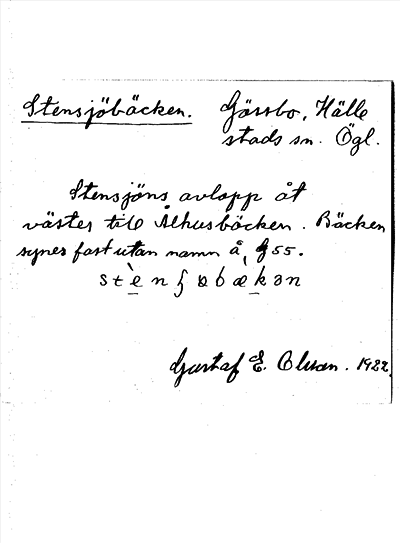 Stensjöbäcken. Gåssbo, Hälle
stads sn. Ögl.
Stensjöns avlopp åt
väster till Alhusbäcken. Bäcken
synes fast utan namn å, g 55.
Gustaf E. Olsson. 1922.